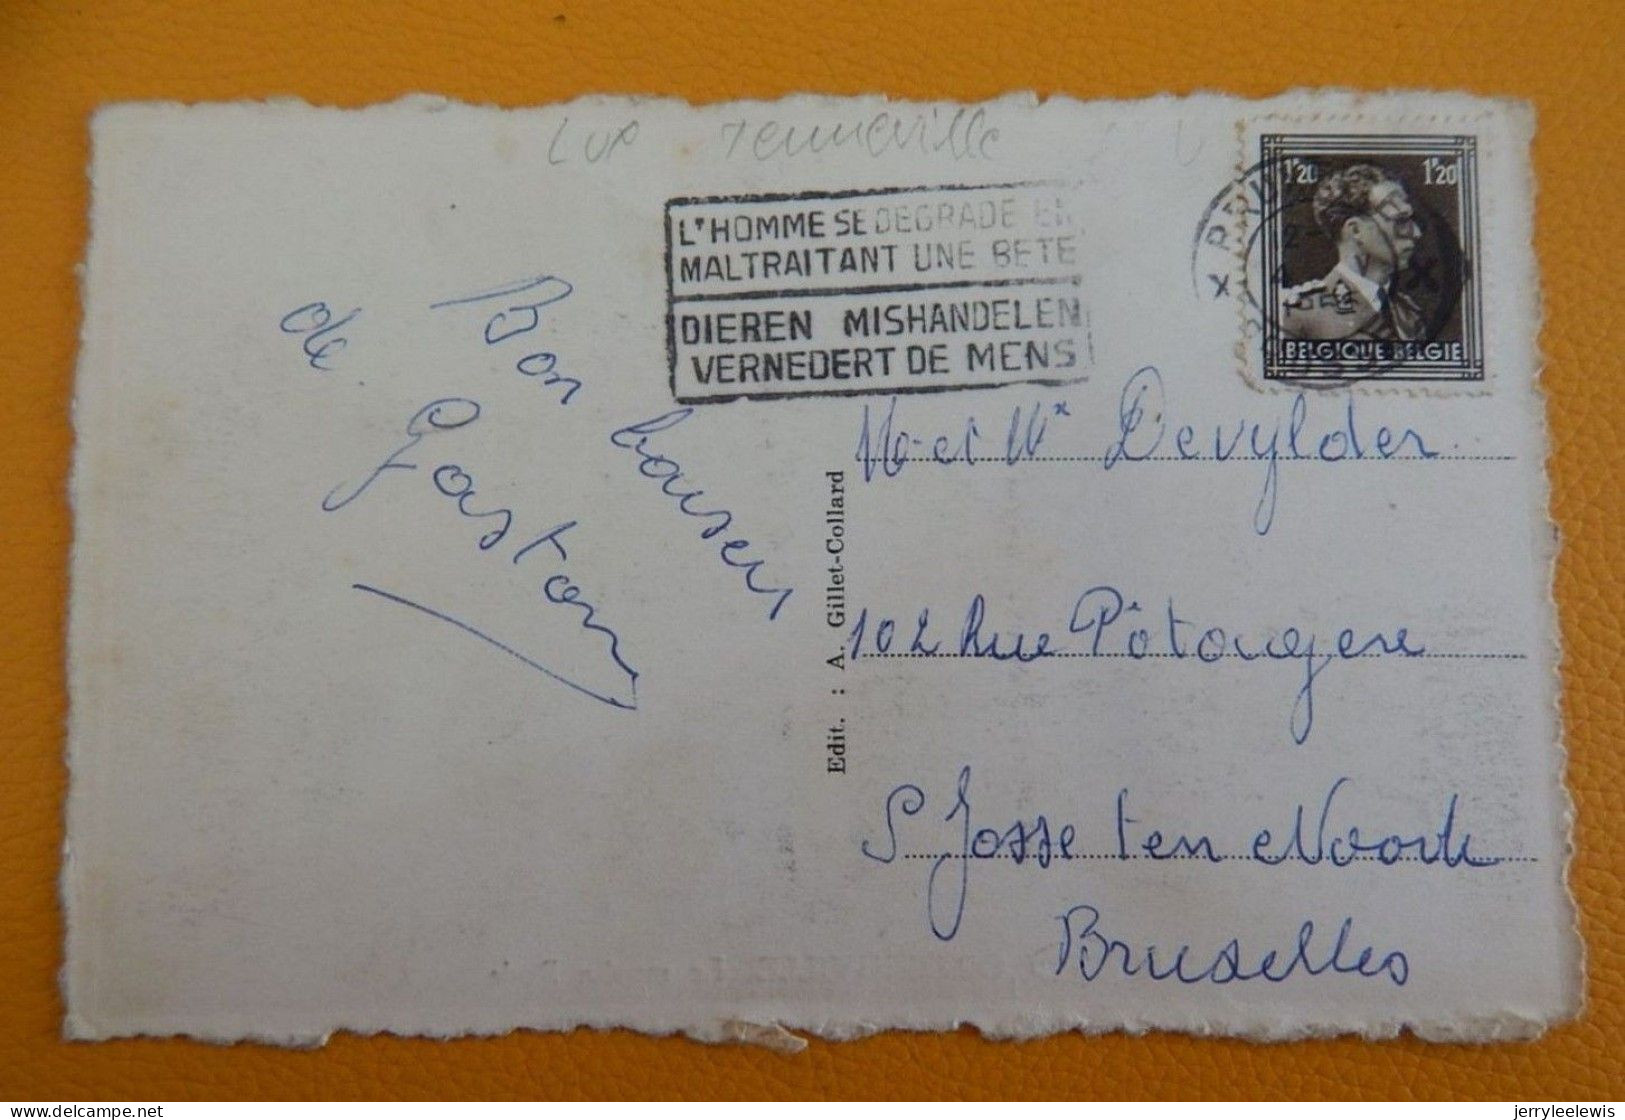 Tenneville
L'HOMME SE DEGRADE EN
MALTRAITANT UNE BETE
DIEREN MISHANDELEN
VERNEDERT DE MENS
1F20 1F20
BELGIQUE BELGIE
Bon baisers
de Gaston
Edit. : A. Gillet-Collard
Devylder
102 Rue Potagere
St Josse ten Noode
Bruxelles
jerryleelewis